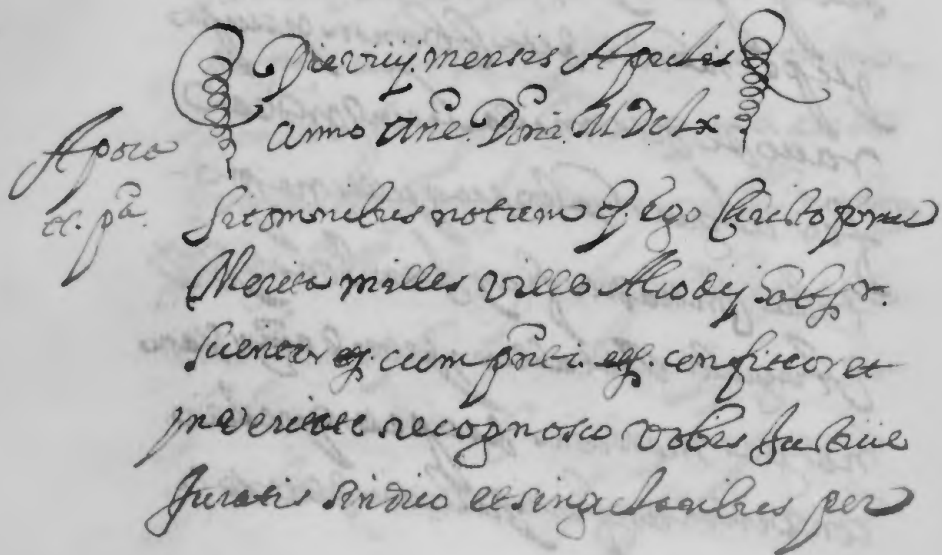 Die viiij mensis Aprilis
anno a Nre. Dni. MDCLx
Apoca
et. pa.
Sit omnibus notum q. Ego Christoforus
Morita milles ville Alcodij
Scienter etc. cum pnti. etc. confiteor et
in veritate recognosco vobis Justitie
Juratis Sindico et singularibus per